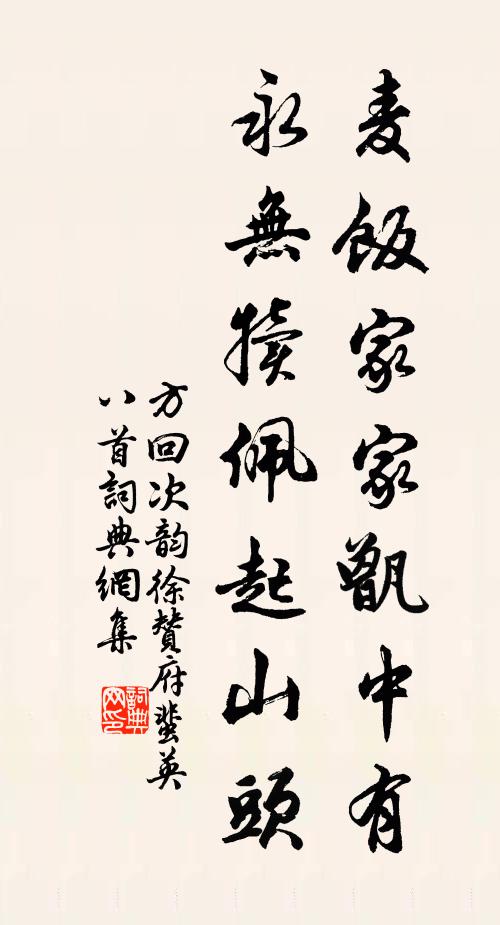 麦飯家家甑中有
永無犢佩起山頭
方回次韵徐贊府蜚英
八首詞典網集
詞典
网印